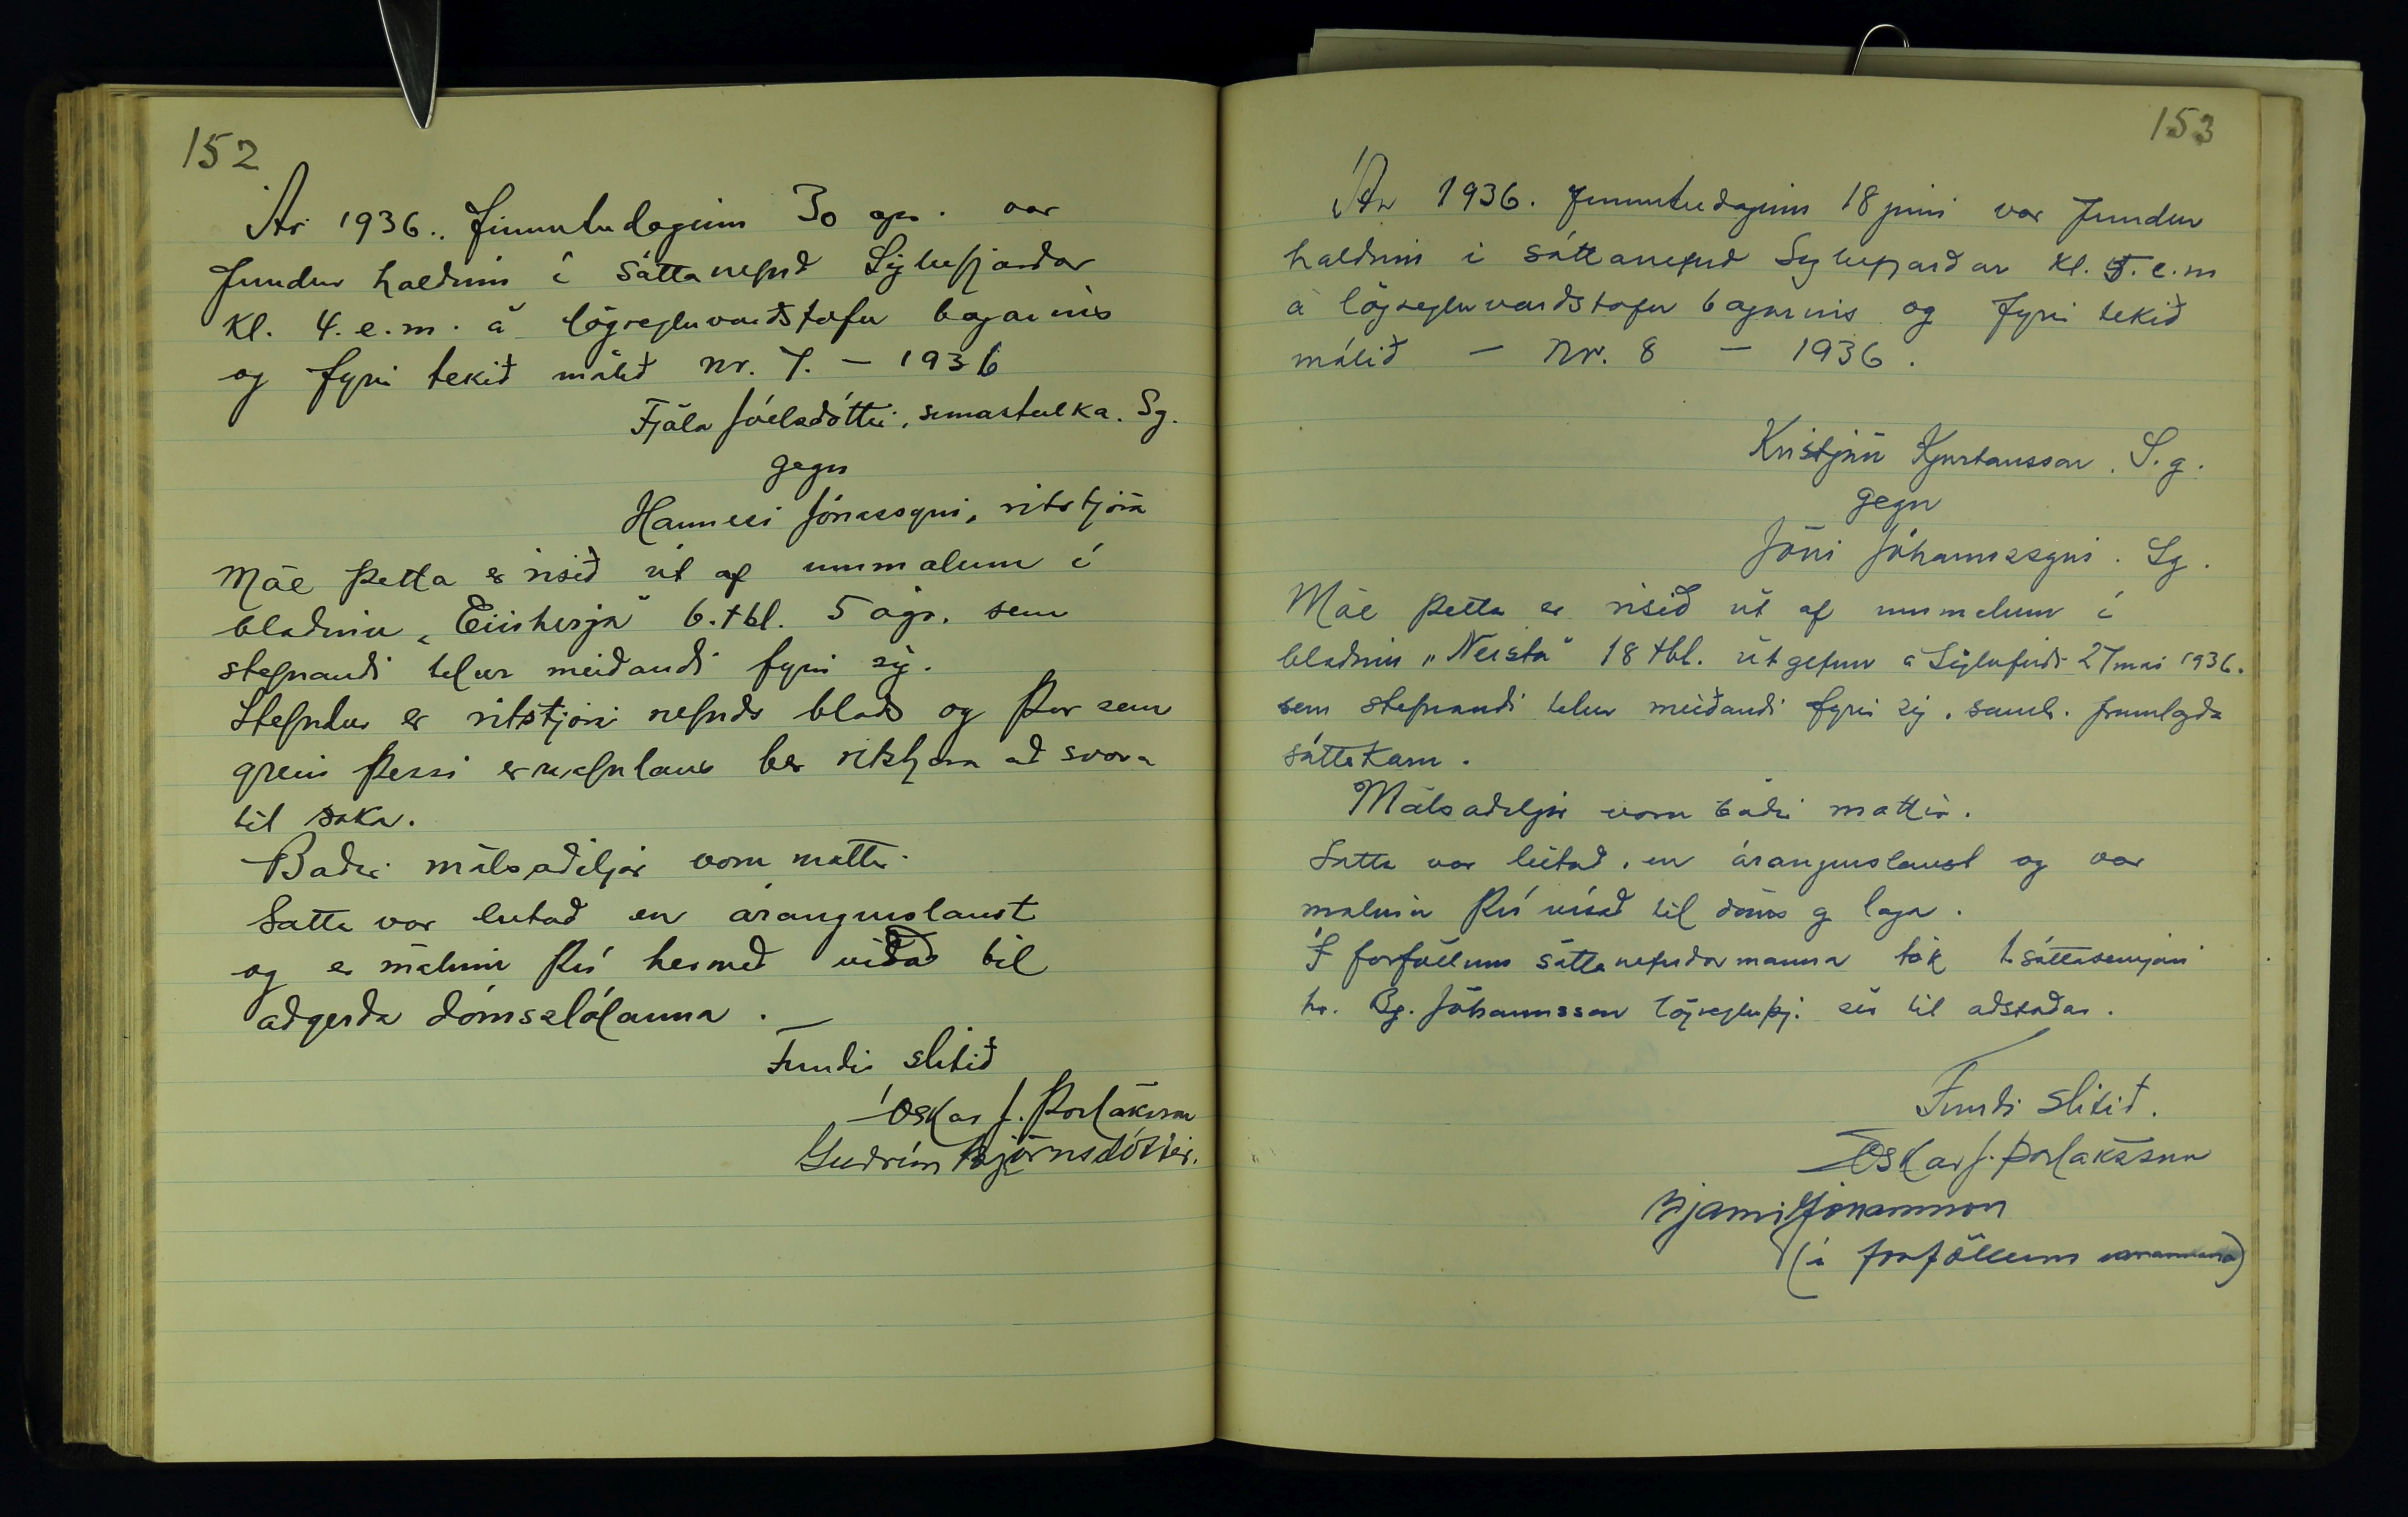 152
Ár 1936. Fimmtudaginn 30 apr. var
fundur haldinn í sáttanefnd Siglufjarðar
Kl. 4. e.m. á lögregluvarðstofu bæjarins
og fyrir tekið málið nr. 7. - 1936
Fjóla Jóelsdóttir, símastulka. Sg.
gegn
Hannesi Jónassyni, ritstjóra
Mál þetta er risið út af ummælum í
blaðinu „Einherja" 6. tbl. 5 ágr. sem
stefnandi telur meiðandi fyrir sig.
Stefndur er ritstjóri nefnds blaðs og þar sem
grein þessi er nafnlaus ber ritstjóra að svara
til saka.
Báðir málsaðiljar voru mættir.
Sátta var leitað en árangurslaust
og er málinu því hermeð vísað til
aðgerða dómstólanna.
Fundi slitið
Óskar J. Þorláksson
Guðrún Björnsdóttir.
153
Ár 1936. Fimmtudaginn 18 júni var fundur
haldinn i sáttanefnd Siglufjarðar Kl. 5. e.m
á lögregluvarðstofu bæjarins og fyrir tekið
málið - Nr. 8 - 1936.
Kristján Kjartansson. S.g.
gegn
Jóni Jóhannssyni. Sg.
Mál þetta er risið út af ummælum í
blaðinu „Neista" 18 tbl. útgefnu á Siglufirði 27 mai 1936.
sem stefnandi telur meiðandi fyrir sig. samb. framlagða
sáttakæru.
Málsaðiljar voru báðir mættir.
Sátta var leitað, en árangurslaust og var
málinu því vísað til dóms og laga.
Í forföllum sáttanefndarmanna tók 1. sáttasemjari
hr. Bj. Jóhannsson lögregluþj. sér til aðstoðar.
Fundi slitið.
Óskar J. Þorláksson
Bjarni Jóhannsson
(í forföllum varamanna)